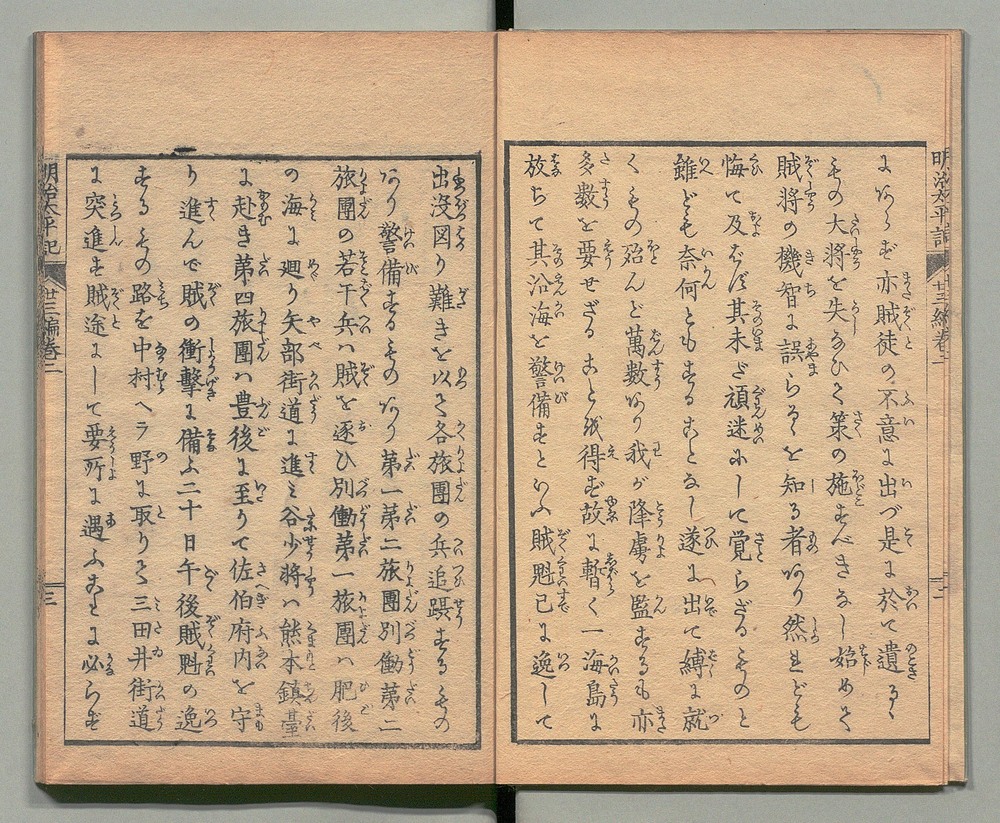 にあらず亦賊徒の不意に出づ是に於て遺る
其の大将を失なひて策の施すべきなし始めて
賊将の機智に誤らるゝを知る者あり然れども
悔て及ばず其未だ頑迷にして覚らざるものと
雖ども奈何ともすることなし遂に出て縛に就
くもの殆んど萬数あり我が降虜を監するも亦
多数を要せざることを得ず故に暫く一海島に
放ちて其沿海を警備すといふ賊魁已に逸して
明治太平記
廿三編巻二
二
出没図り難きを以て各旅團の兵追躡するもの
あり警備するものあり第一第二旅團別働第二
旅團の若干兵ハ賊を逐ひ別働第一旅團ハ肥後
の海に廻り矢部街道に進ミ谷少将ハ熊本鎮臺
に赴き第四旅團ハ豊後に至りて佐伯府内を守
り進んで賊の衝擊に備ふ二十日午後賊魁の逸
するもの路を中村ヘラ野に取りて三田井街道
に突進す賊途にして要所に遇ふことに必らず
明治太平記
廿三編巻二
三